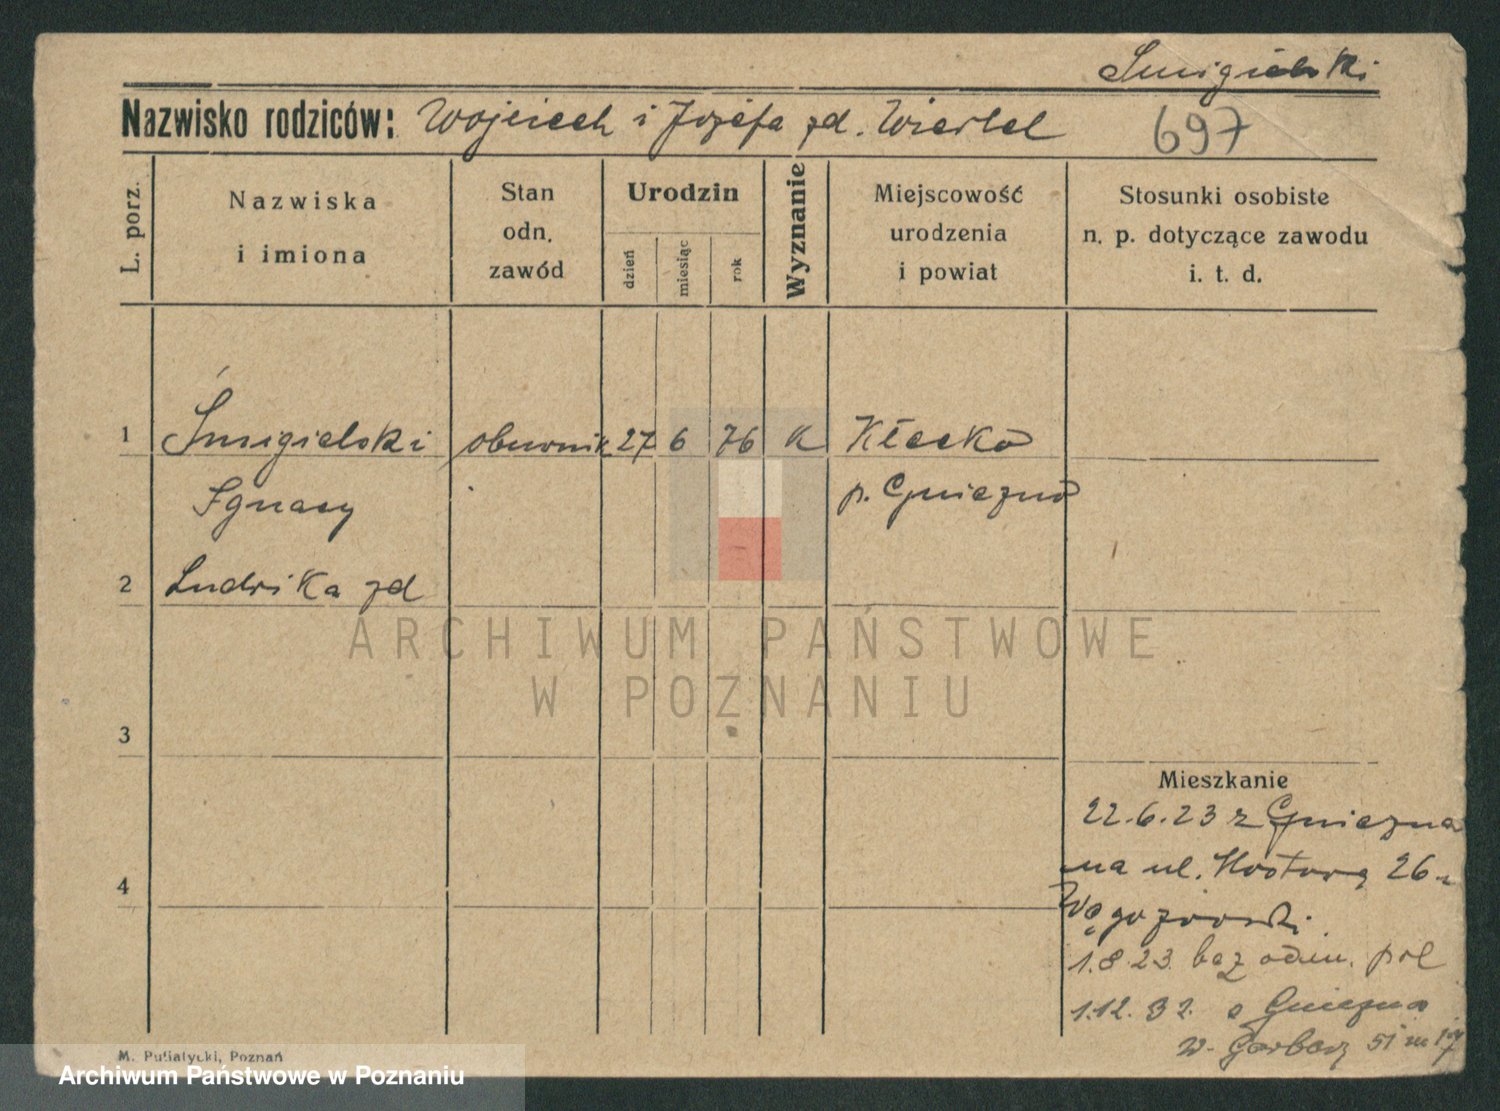 Śmigielski
Nazwisko rodziców: Wojciech i Józefa zd. Wiertel
697
L. porz.
Nazwiska
i imiona
Stan
odn.
zawód
Urodzin
dzień
miesiąc
rok
Wyznanie
Miejscowość
urodzenia
i powiat
Stosunki osobiste
n. p. dotyczące zawodu
i. t. d.
1 Śmigielski obuwnik 27 6 76 k Kłecko
Ignacy p. Gniezno
2 Ludwika zd
ARCHIWUM PAŃSTWOWE
W POZNANIU
3
Mieszkanie
22.6.23 z Gniezna
4
na ul. 26
1.8.23. bez odm. pol
1.12.32. Gniezna
w. Garbary 51 m
M. Putiatycki, Poznań
Archiwum Państwowe w Poznaniu